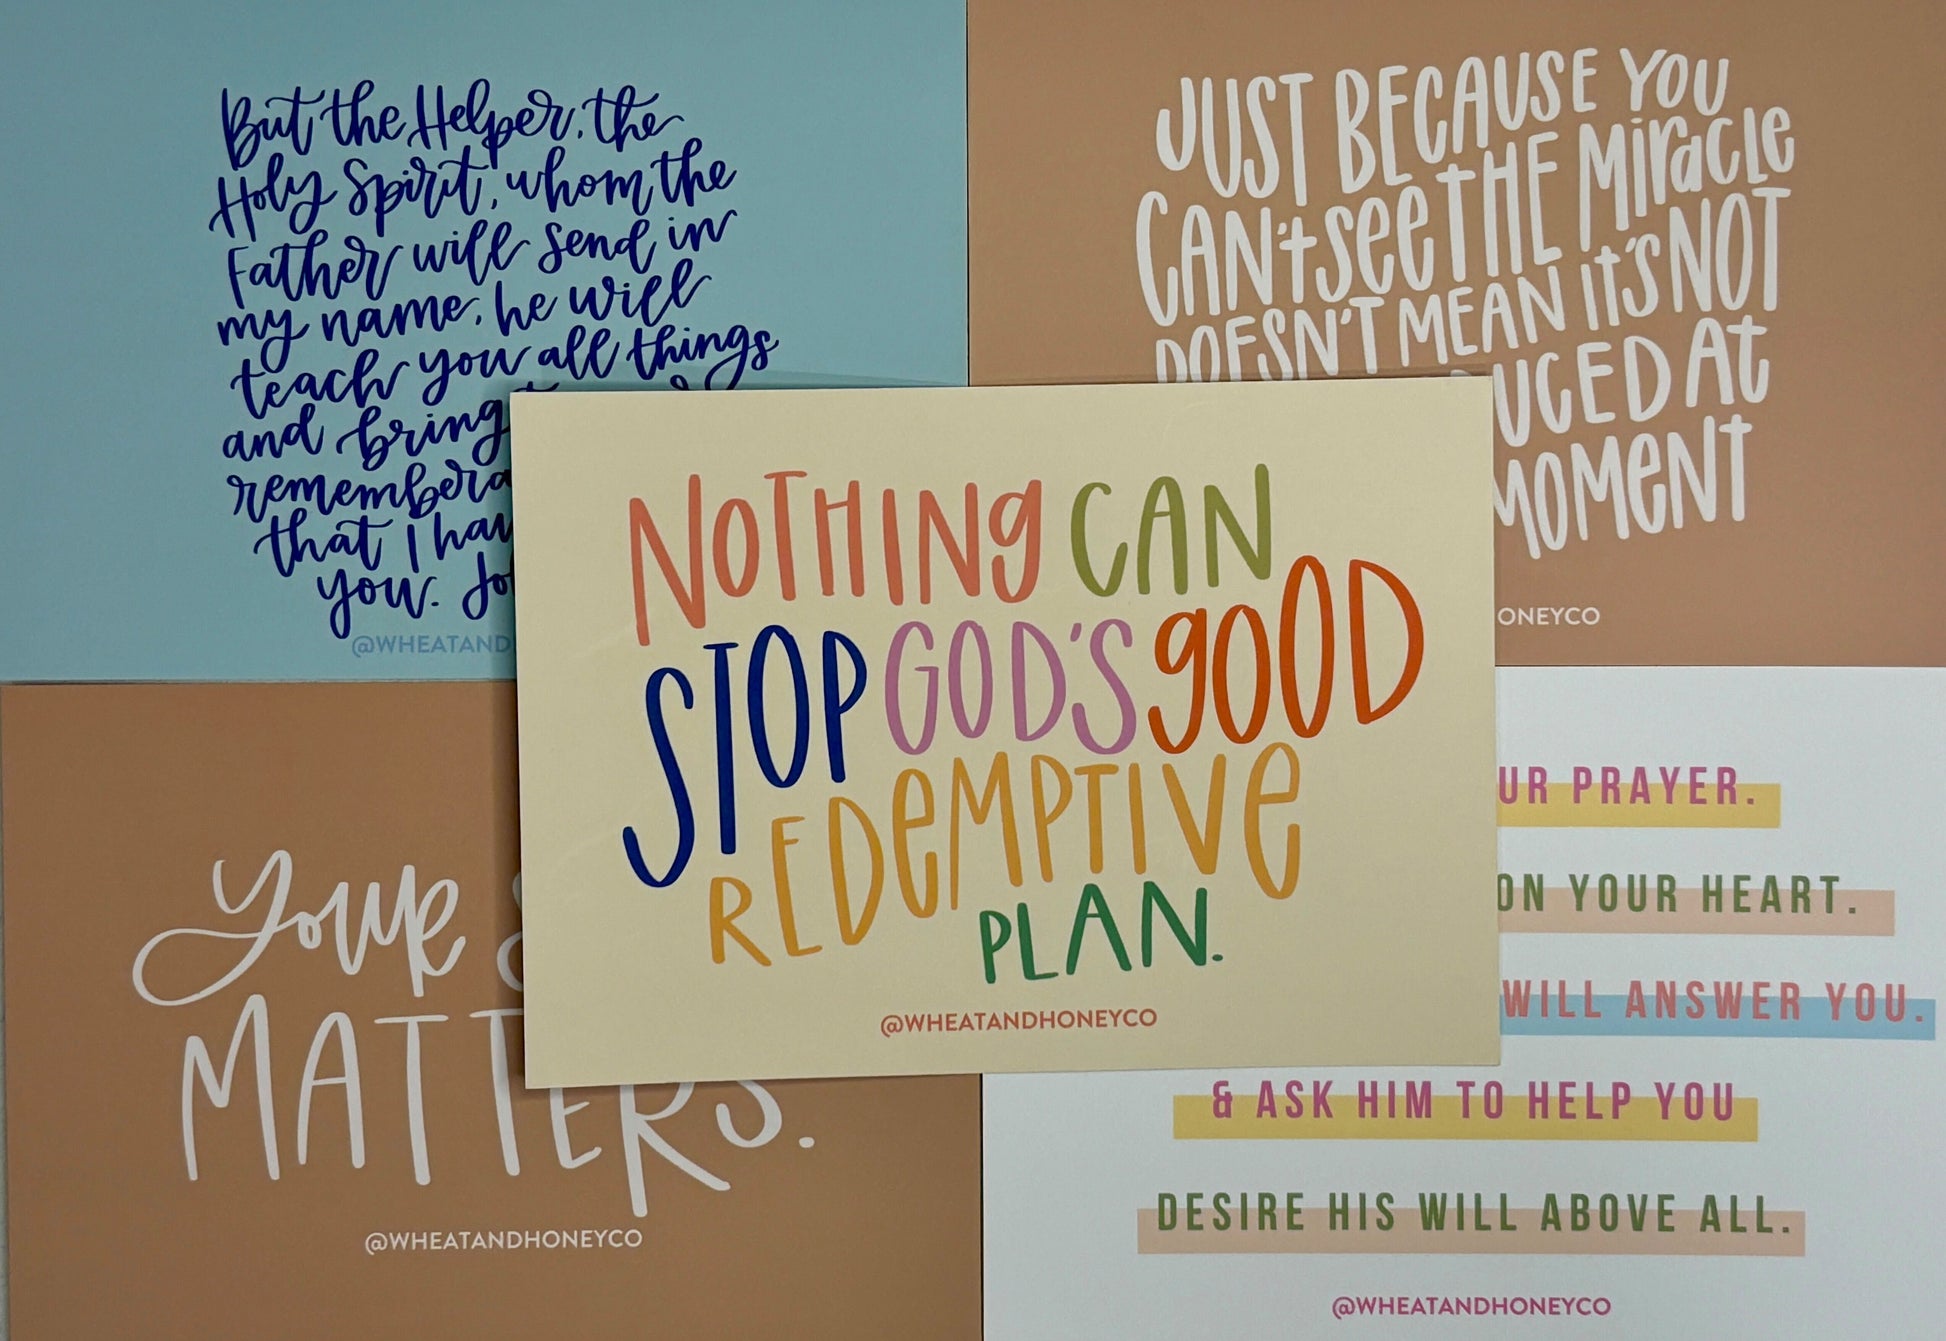 But the Helper, the
Holy Spirit, whom the
Father will send in
my name, he will
teach you all things
and bring
that I
you.
@WHEATAND
JUST BECAUSE YOU
CAN'T SEE THE MIRACLE
DOESN'T MEAN IT'S NOT
AT
MOMENT
ONEYCO
NOTHING CAN
STOP GOD'S GOOD
REDEMPTIVE
PLAN.
@WHEATANDHONEYCO
YOUR
MATTERS.
@WHEATANDHONEYCO
UR PRAYER.
ON YOUR HEART.
WILL ANSWER YOU.
& ASK HIM TO HELP YOU
DESIRE HIS WILL ABOVE ALL.
@WHEATANDHONEYCO